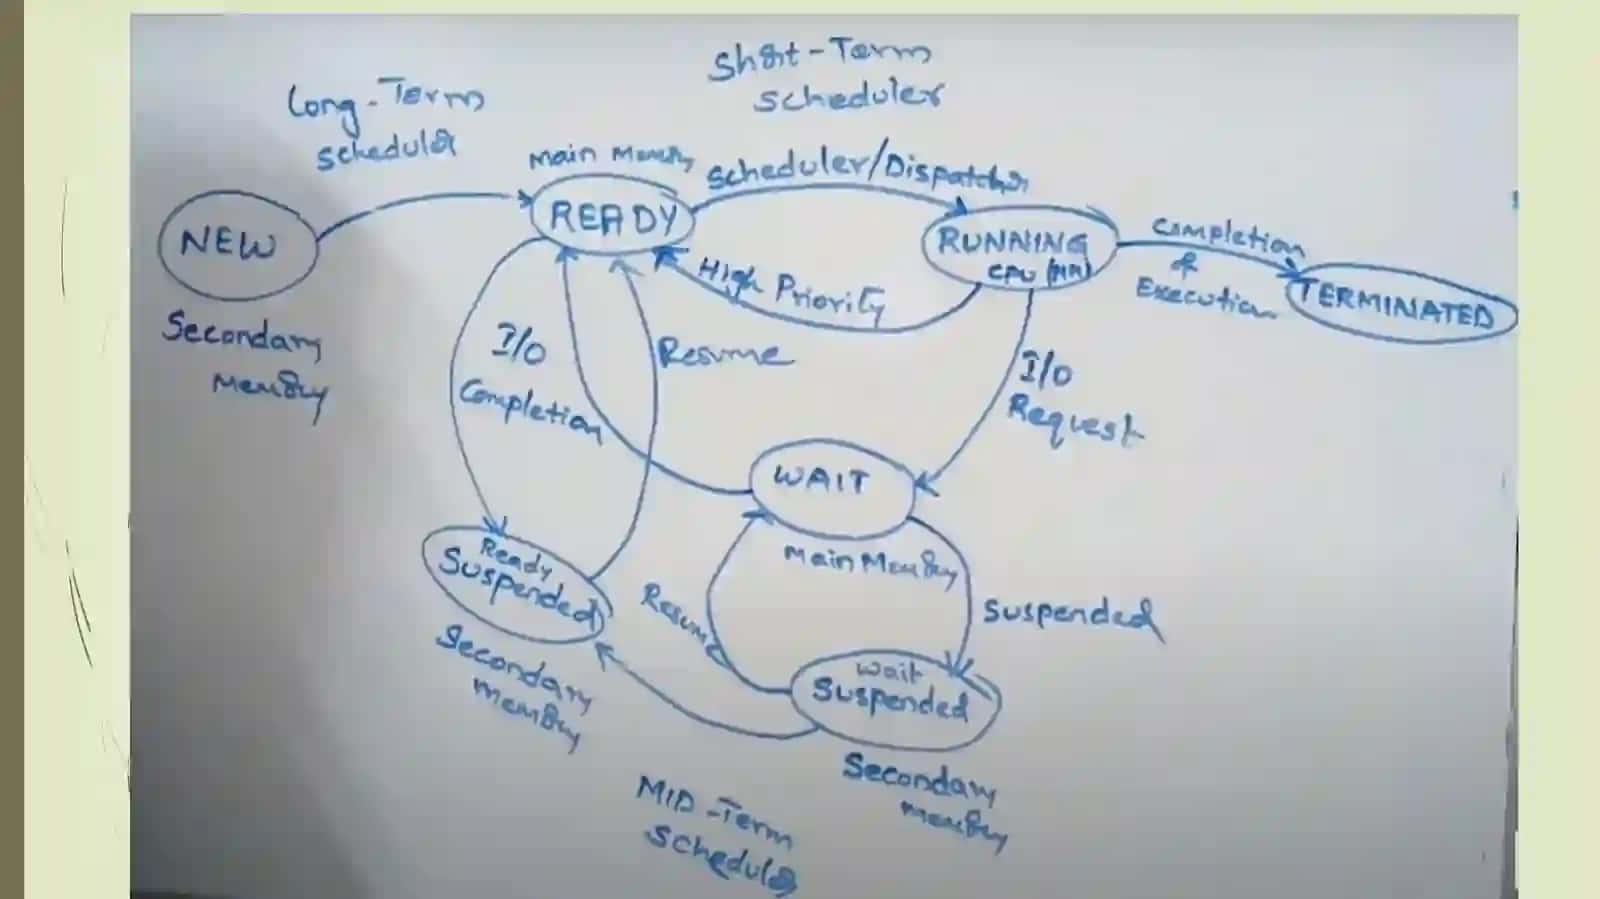 Short-Term
Scheduler
Long-Term
Scheduler
Main Memory
Scheduler/Dispatcher
NEW
READY
RUNNING
CPU (MM)
Completion
of
Execution
TERMINATED
High Priority
Secondary
Memory
I/O
Completion
Resume
I/O
Request
WAIT
Main Memory
Ready
Suspended
Resume
Suspended
Secondary
Memory
Wait
Suspended
Secondary
Memory
MID-Term
Scheduler